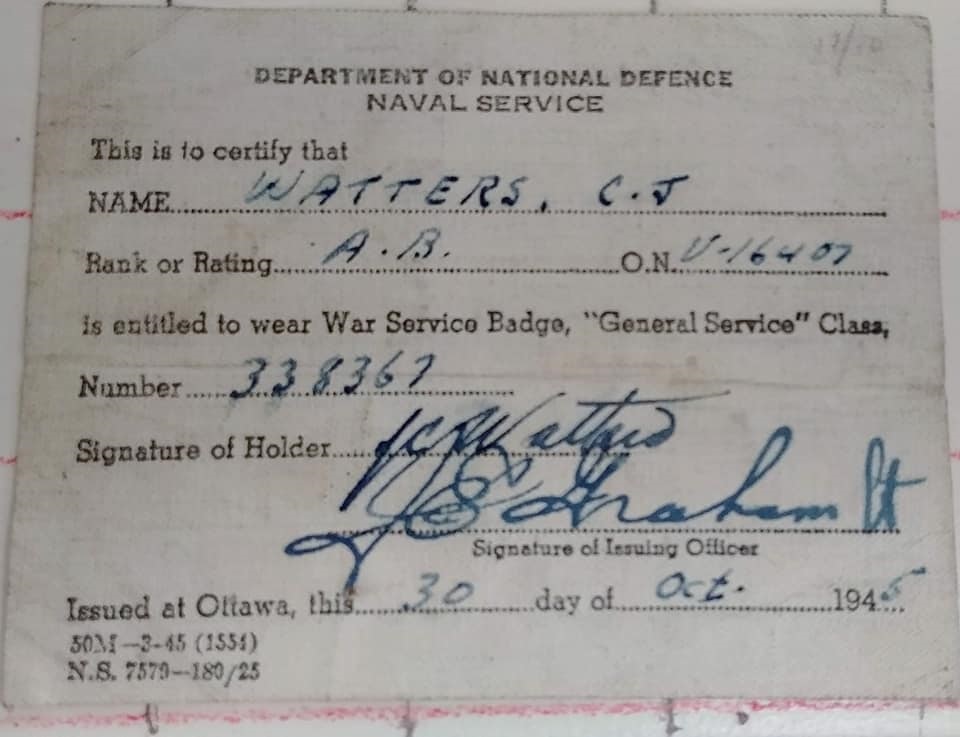 DEPARTMENT OF NATIONAL DEFENCE
NAVAL SERVICE
This is to certify that
NAME WATTERS, C.J
Rank or Rating A.B. O.N. V-16407
is entitled to wear War Service Badge, "General Service" Class,
Number 338367
Signature of Holder Watters
Graham Lt
Signature of Issuing Officer
Issued at Ottawa, this 30 day of Oct. 1945
50M-3-45 (1554)
N.S. 7579-180/25